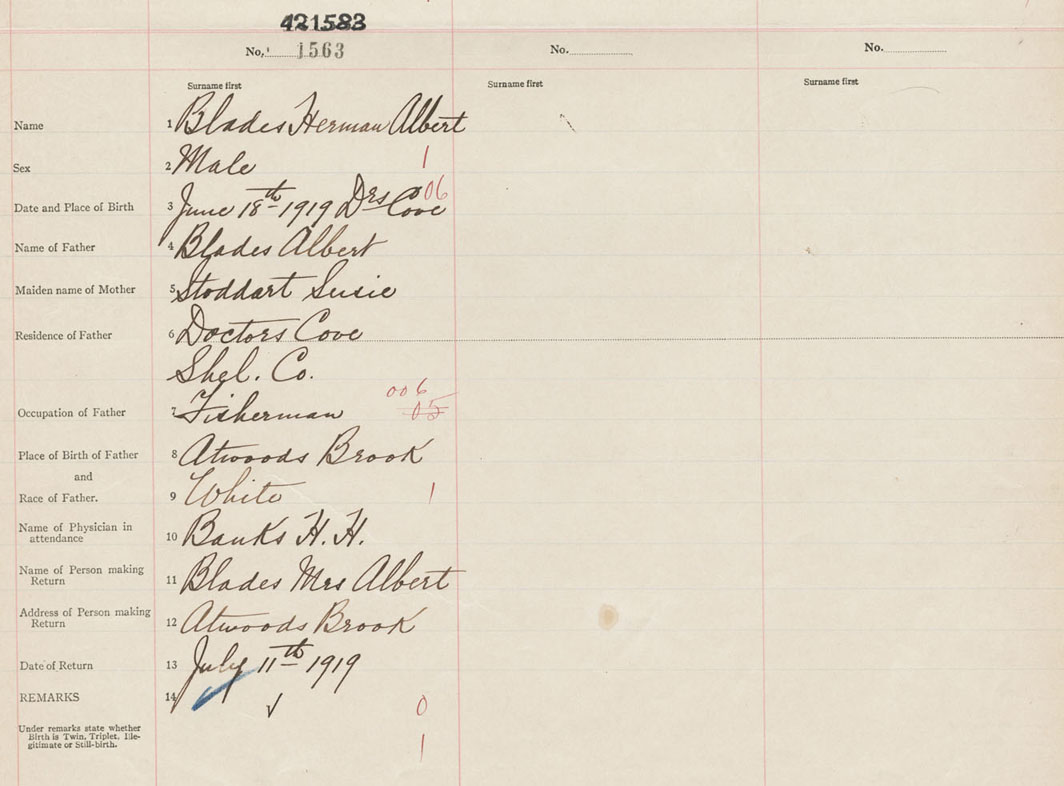 421583
No. 1563 No. No.
Surname first Surname first Surname first
Name 1 Blades Herman Albert
Sex 2 Male 1
06
Date and Place of Birth 3 June 18th 1919 Drs Cove
Name of Father 4 Blades Albert
Maiden name of Mother 5 Stoddart Susie
Residence of Father 6 Doctors Cove
Shel. Co.
006
Occupation of Father 7 Fisherman 05
Place of Birth of Father 8 Atwoods Brook
and
Race of Father. 9 White 1
Name of Physician in
attendance 10 Banks H. H.
Name of Person making
Return 11 Blades Mrs Albert
Address of Person making
Return 12 Atwoods Brook
Date of Return 13 July 11th 1919
REMARKS 14 0
Under remarks state whether
Birth is Twin, Triplet, Ille-
gitimate or Still-birth. 1